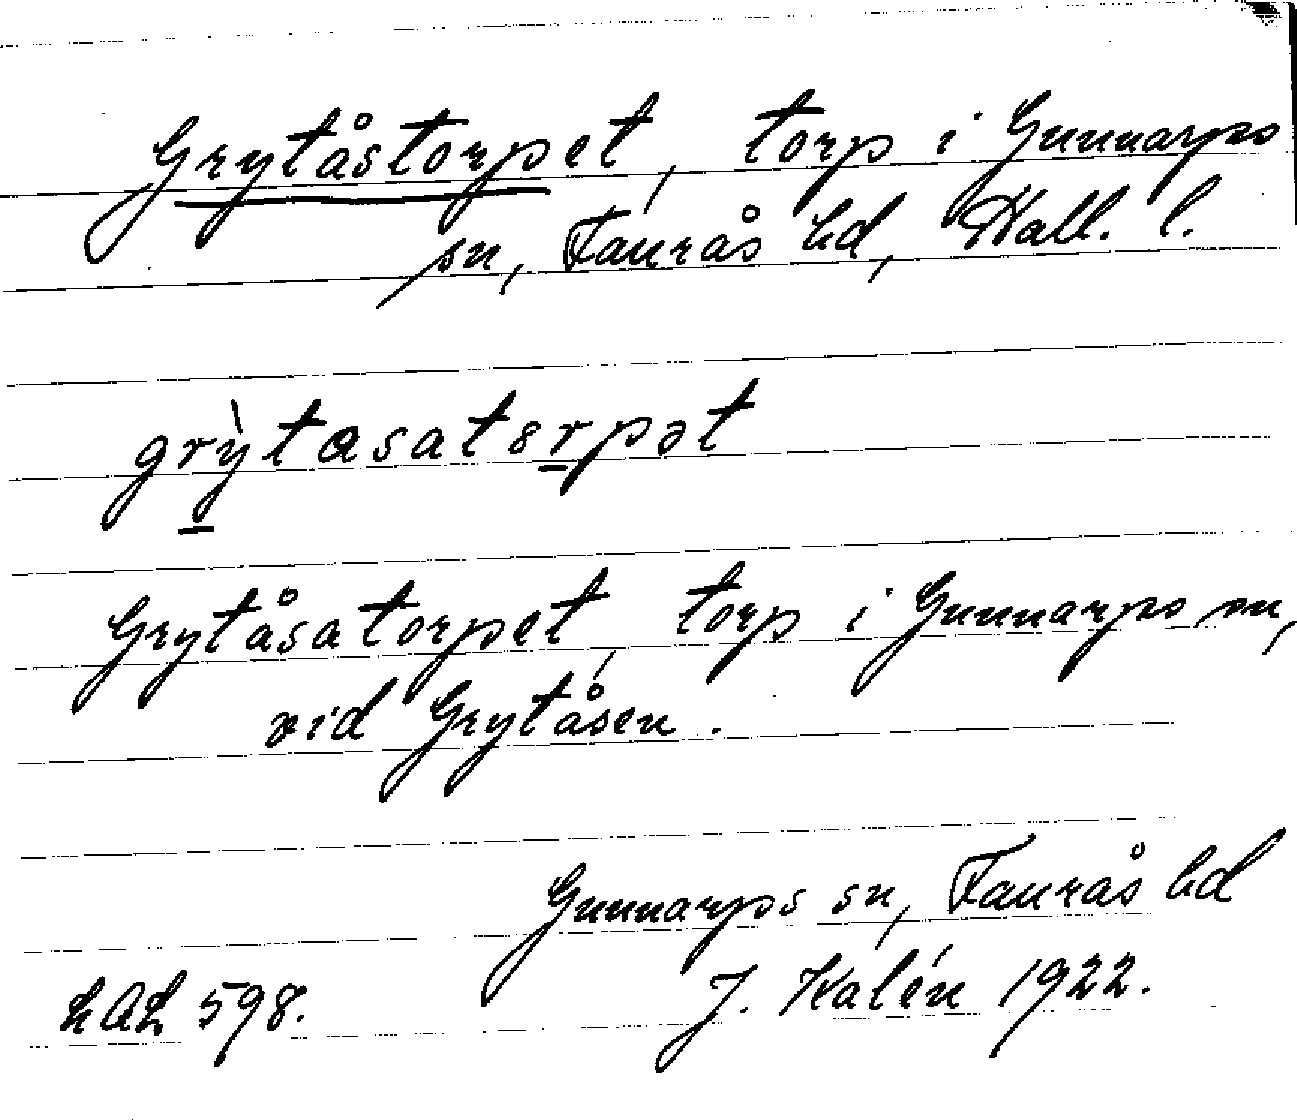 Grytåstorpet, torp i Gunnarps
sn, Faurås hd, Hall. l.
grỳtasat8rpət
Grytåsatorpet, torp i Gunnarps sn,
vid Grytåsen.
Gunnarps sn, Faurås hd
LAL 598. J. Kalén 1922.